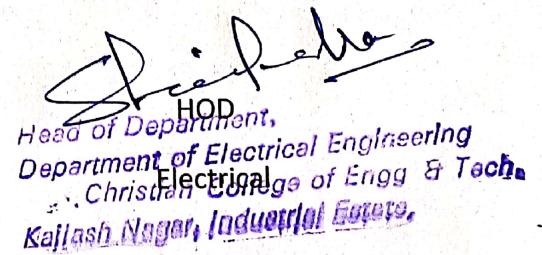 HOD
Head of Department,
Department of Electrical Engineering
Electrical
Christian College of Engg & Tech.
Kailash Nagar, Industrial Estate,